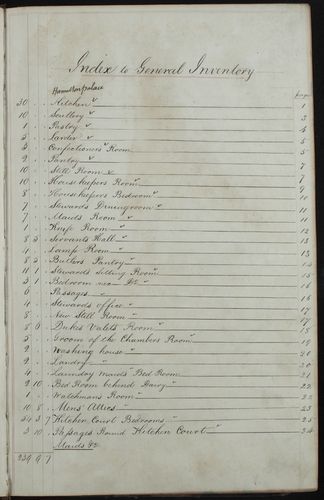 Index to General Inventory
Hamilton palace
page
30 Kitchen 1
10 Scullery 3
1 Pastry 4
3 Larder 4
3 Confectioners Room 5
9 Pantry 5
10 Still Room 7
10 Housekeepers Room
8 Housekeepers Bedroom
7 Stewards Diningroom
7 Maids Room 11
1 Knife Room 12
8 Servants Hall
4 Lamp Room
8 Butlers Pantry
11 1 Stewards Sitting Room
3 1 Bedroom
Passages
4 Stewards office
8 New Still Room
8 6 Dukes Valets Room
5 Groom of the Chambers Room
9 Washing house
9 Laundry
4 Laundry Maids Bed Room
9 10 Bed Room behind Dairy
1 Watchmans Room 22
10 8 Mens Attics 23
34 3 7 Kitchen Court Bedrooms 23
3 10 Passages Round Kitchen Court 24
Maids
239 9 7